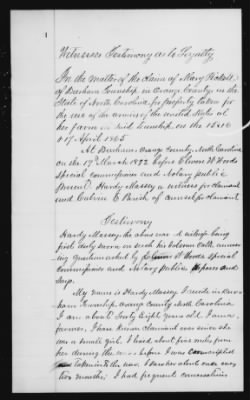 1
Witnesses Testimony as to Loyalty
In the matter of the claim of Mary Piddell
of Durham Township in Orange County in the
State of North Carolina for property taken for
the use of the army of the united states at
her farm in said township on the 15 & 16
& 17 April 1865
At Durham Orange County North Carolina
on the 17th March 1872 before
special commissioner and Notary public
present Hardy Massey a witness for claimant
and
Testimony
Hardy Massey the above named witness being
first duly sworn on such his solemn oath answer
ing questions asked by Woods special
commissioner and Notary Public deposes and
says.
My name is Hardy Massey I reside in Dur-
ham Township Orange County North Carolina
I am about forty eight years old. I am a
farmer, I have known claimant ever since she
was a small girl. I lived about five miles from
her during the before I was conscripted
I saw her about once every
two months; I had frequent conversations